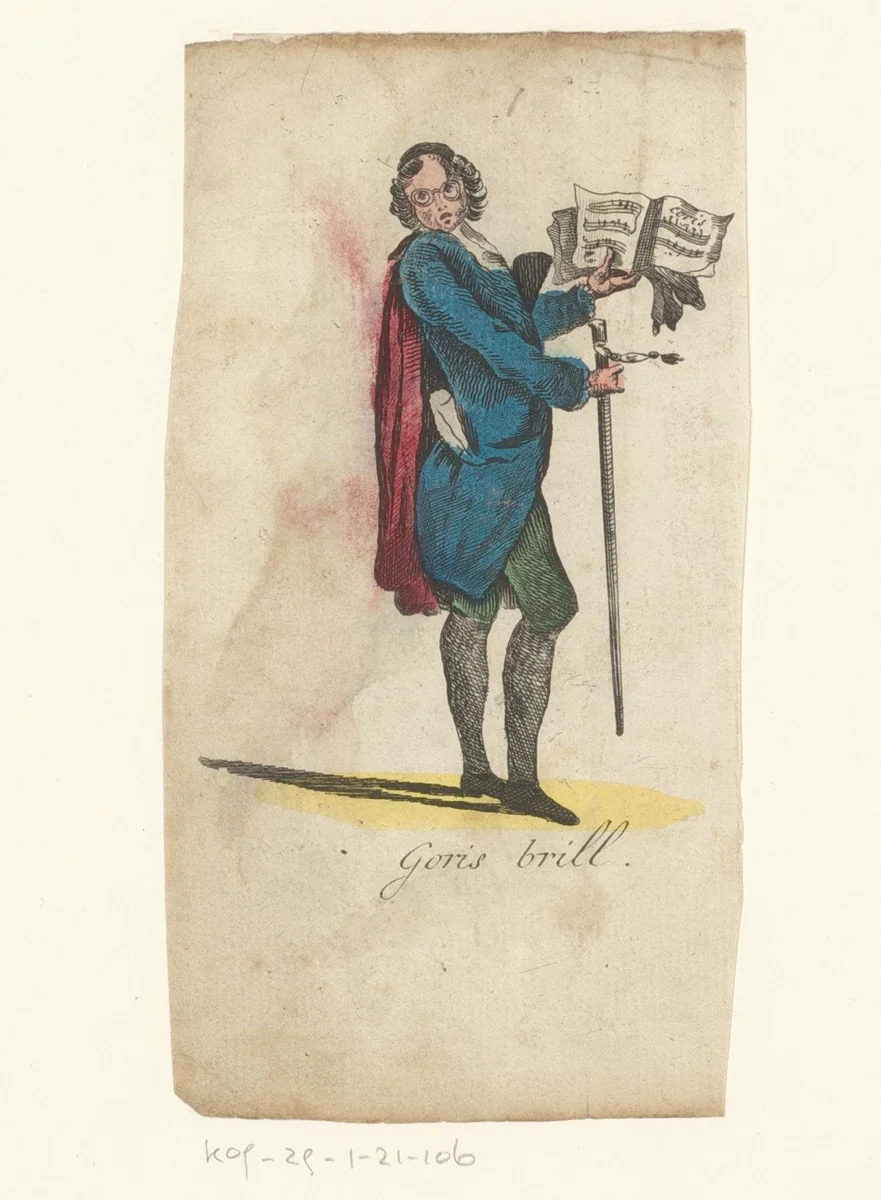 Goris brill.
KOG-29-1-21-106